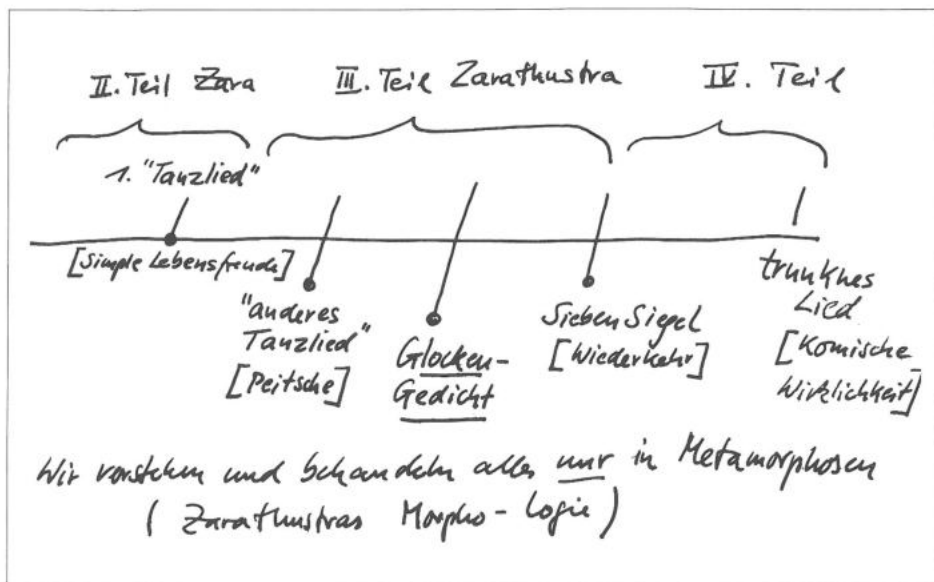 II. Teil Zara III. Teil Zarathustra IV. Teil
1. "Tanzlied"
[Simple Lebensfreude]
"anderes
Tanzlied"
[Peitsche]
Glocken-
Gedicht
Sieben Siegel
[Wiederkehr]
trunknes
Lied
[Komische
Wirklichkeit]
Wir verstehen und behandeln alles nur in Metamorphosen
( Zarathustras Morpho-Logie )